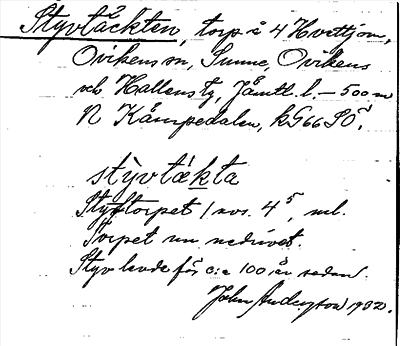 Styvtäckten, torp å 4 Hvettjom,
Ovikens sn, Sunne, Ovikens
och Hallens tg, Jämtl. l. – 500 m
N Kämpedalen, k G66 SO.
stỳvtækta
Styvtorpet / nos. 4⁵, ml.
Torpet nu nedrivet.
Styv levde för c:a 100 år sedan.
John Anderson 1932.